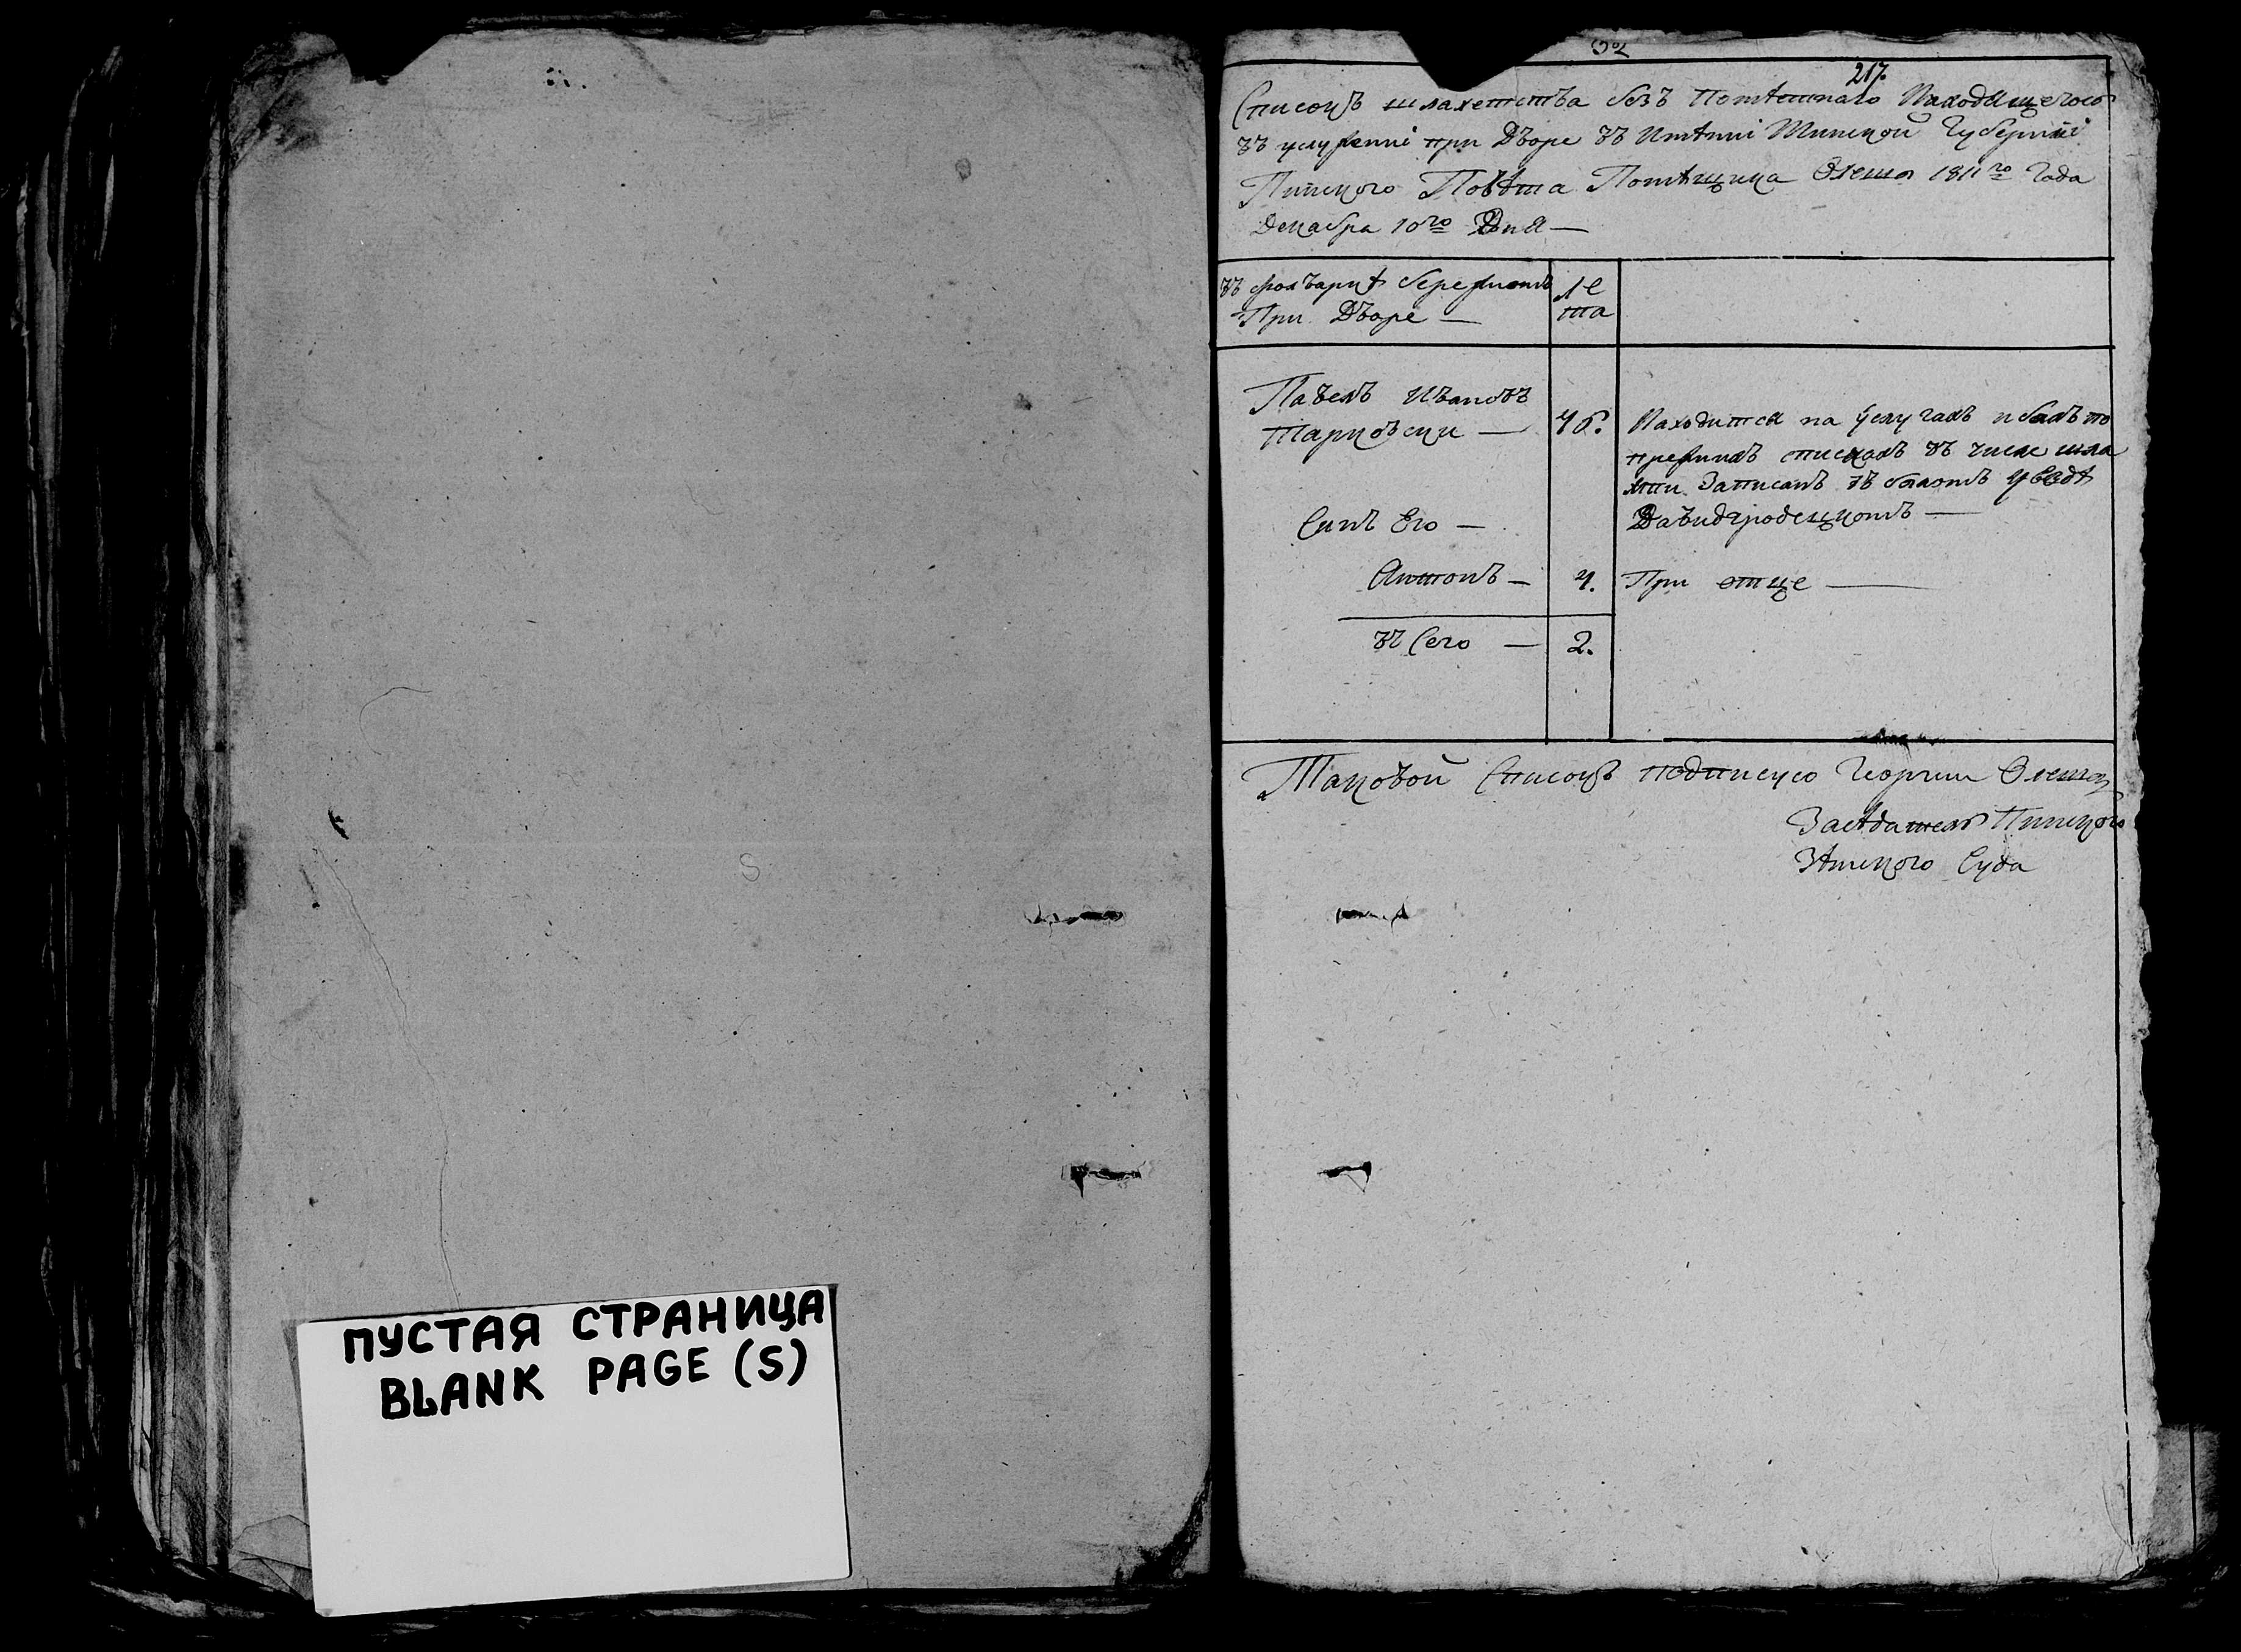 217.
Списокъ шляхетства безъ Поместнаго Находящегося
въ услужениі при Дворе въ Имѣниі Минской Губерниі
Пинского Повѣта Помѣщика Олеши 1811го Года
Декабра 10го Дня —
въ фолварку Бережномъ
При Дворе —
Ле
та
Павелъ Ивановъ
Тарковски —
46.
Находится на услугахъ и былъ по
прежнихъ спискахъ въ числе шла
хти Записанъ въ бывшомъ уездѣ
Давидгродецкомъ —
Синъ Его —
Антонъ —
4.
При отце —
въ Сего —
2.
Таковой Списокъ подписую Георгии Олеша
Засѣдатель Пинского
Зѣмского Суда
ПУСТАЯ СТРАНИЦА
BLANK PAGE (S)